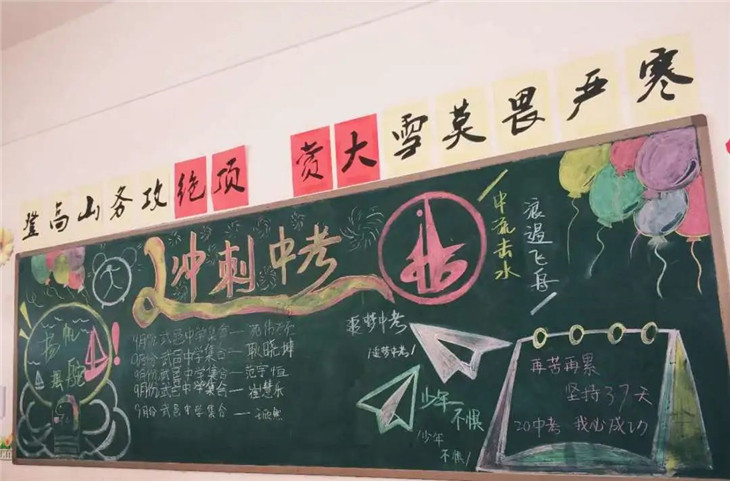 登高山务攻绝顶 赏大雪莫畏严寒
冲刺中考
中流击水
浪遏飞舟
扬帆
9月份 武邑中学集合一
9月份 武邑中学集合一 耿晓坤
9月份 武邑中学集合一 范宇恒
9月份 武邑中学集合一 崔慧乐
9月份 武邑中学集合一
逐梦中考
(逐梦中考)
少年
不惧
(少年
不惧)
再苦再累
坚持37天
20中考 我心成功